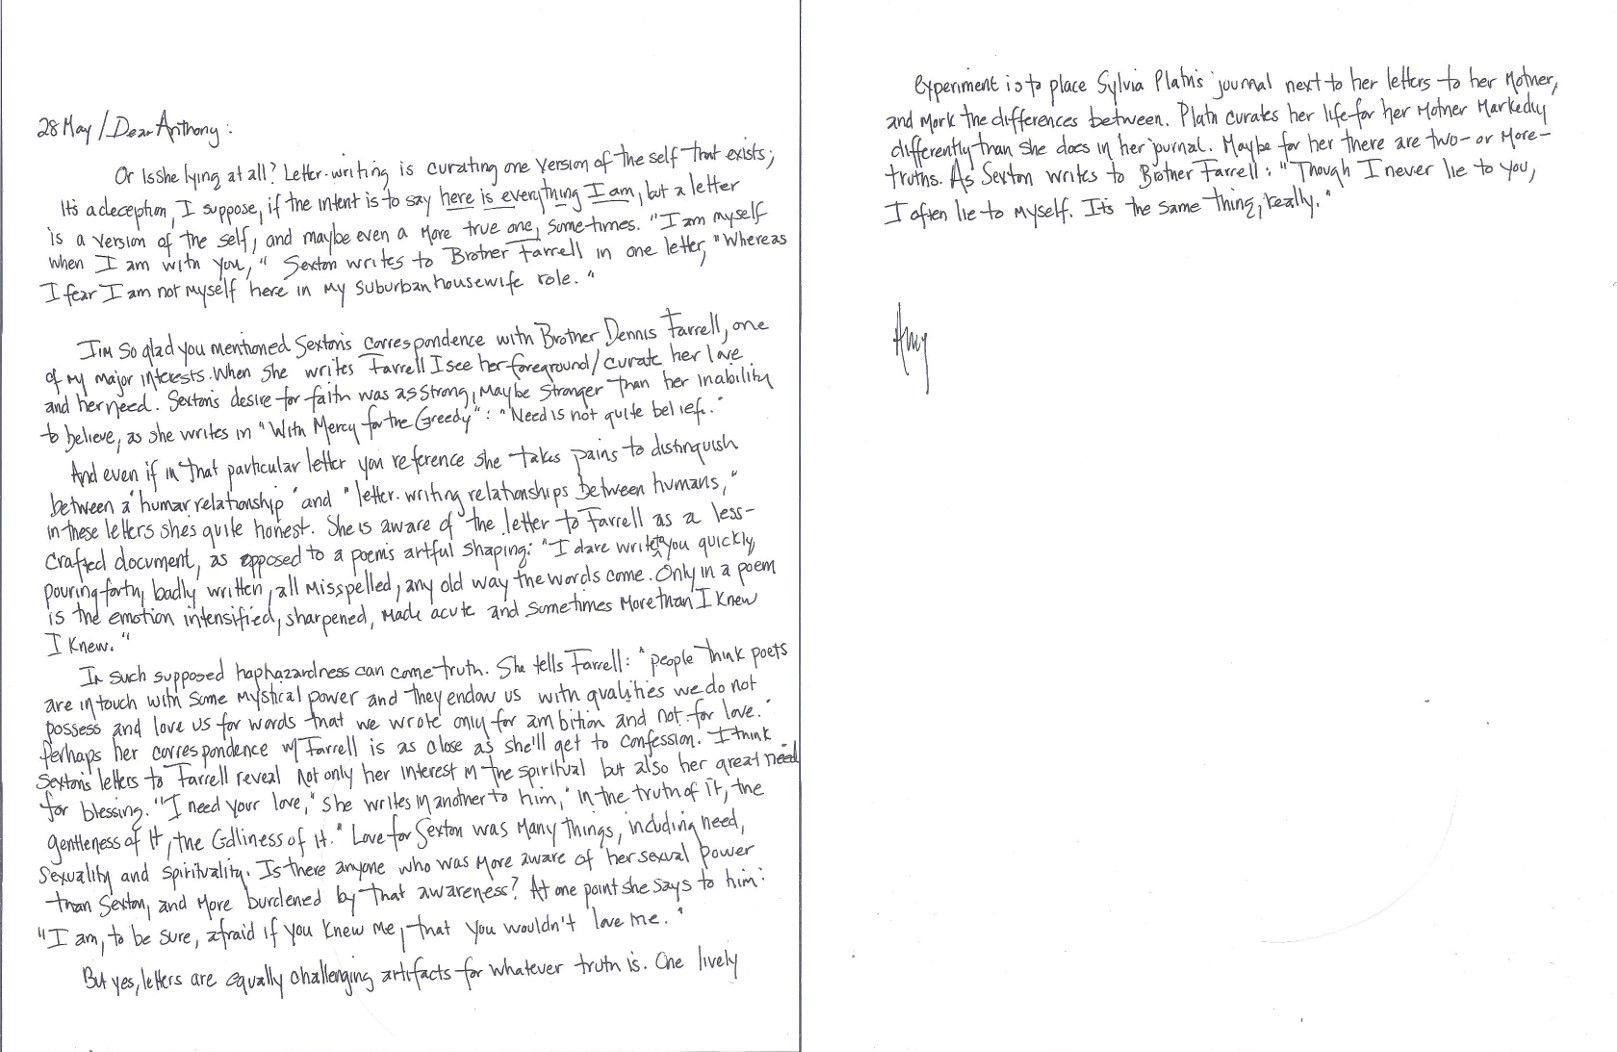 28 May / Dear Anthony:
Or Is she lying at all? Letter-writing is curating one version of the self that exists;
It's a deception, I suppose, if the intent is to say here is everything I am, but a letter
is a version of the self, and maybe even a more true one, some-times. "I am myself
when I am with you," Sexton writes to Brother Farrell in one letter, "Whereas
I fear I am not myself here in my suburban housewife role."
I'm so glad you mentioned Sexton's correspondence with Brother Dennis Farrell, one
of my major interests. When she writes Farrell I see her foreground/curate her love
and her need. Sexton's desire for faith was as strong, maybe stronger than her inability
to believe, as she writes in "With Mercy for the Greedy": "Need is not quite belief."
And even if in that particular letter you reference she takes pains to distinguish
between a "human relationship" and "letter-writing relationships between humans,"
in these letters she's quite honest. She is aware of the letter to Farrell as a less-
crafted document, as opposed to a poem's artful shaping: "I dare write to you quickly,
pouring forth, badly written, all misspelled, any old way the words come. Only in a poem
is the emotion intensified, sharpened, made acute and sometimes more than I knew
I knew."
In such supposed haphazardness can come truth. She tells Farrell: "people think poets
are in touch with some mystical power and they endow us with qualities we do not
possess and love us for words that we wrote only for ambition and not for love."
Perhaps her correspondence w/ Farrell is as close as she'll get to confession. I think
Sexton's letters to Farrell reveal not only her interest in the spiritual but also her great need
for blessing. "I need your love," she writes in another to him, "in the truth of it, the
gentleness of it, the Godliness of it." Love for Sexton was many things, including need,
sexuality and spirituality. Is there anyone who was more aware of her sexual power
than Sexton, and more burdened by that awareness? At one point she says to him:
"I am, to be sure, afraid if you knew me, that you wouldn't love me."
But yes, letters are equally challenging artifacts for whatever truth is. One lively
experiment is to place Sylvia Plath's journal next to her letters to her Mother,
and mark the differences between. Plath curates her life for her Mother markedly
differently than she does in her journal. Maybe for her there are two- or more-
truths. As Sexton writes to Brother Farrell: "Though I never lie to you,
I often lie to myself. It's the same thing, really."
Amy